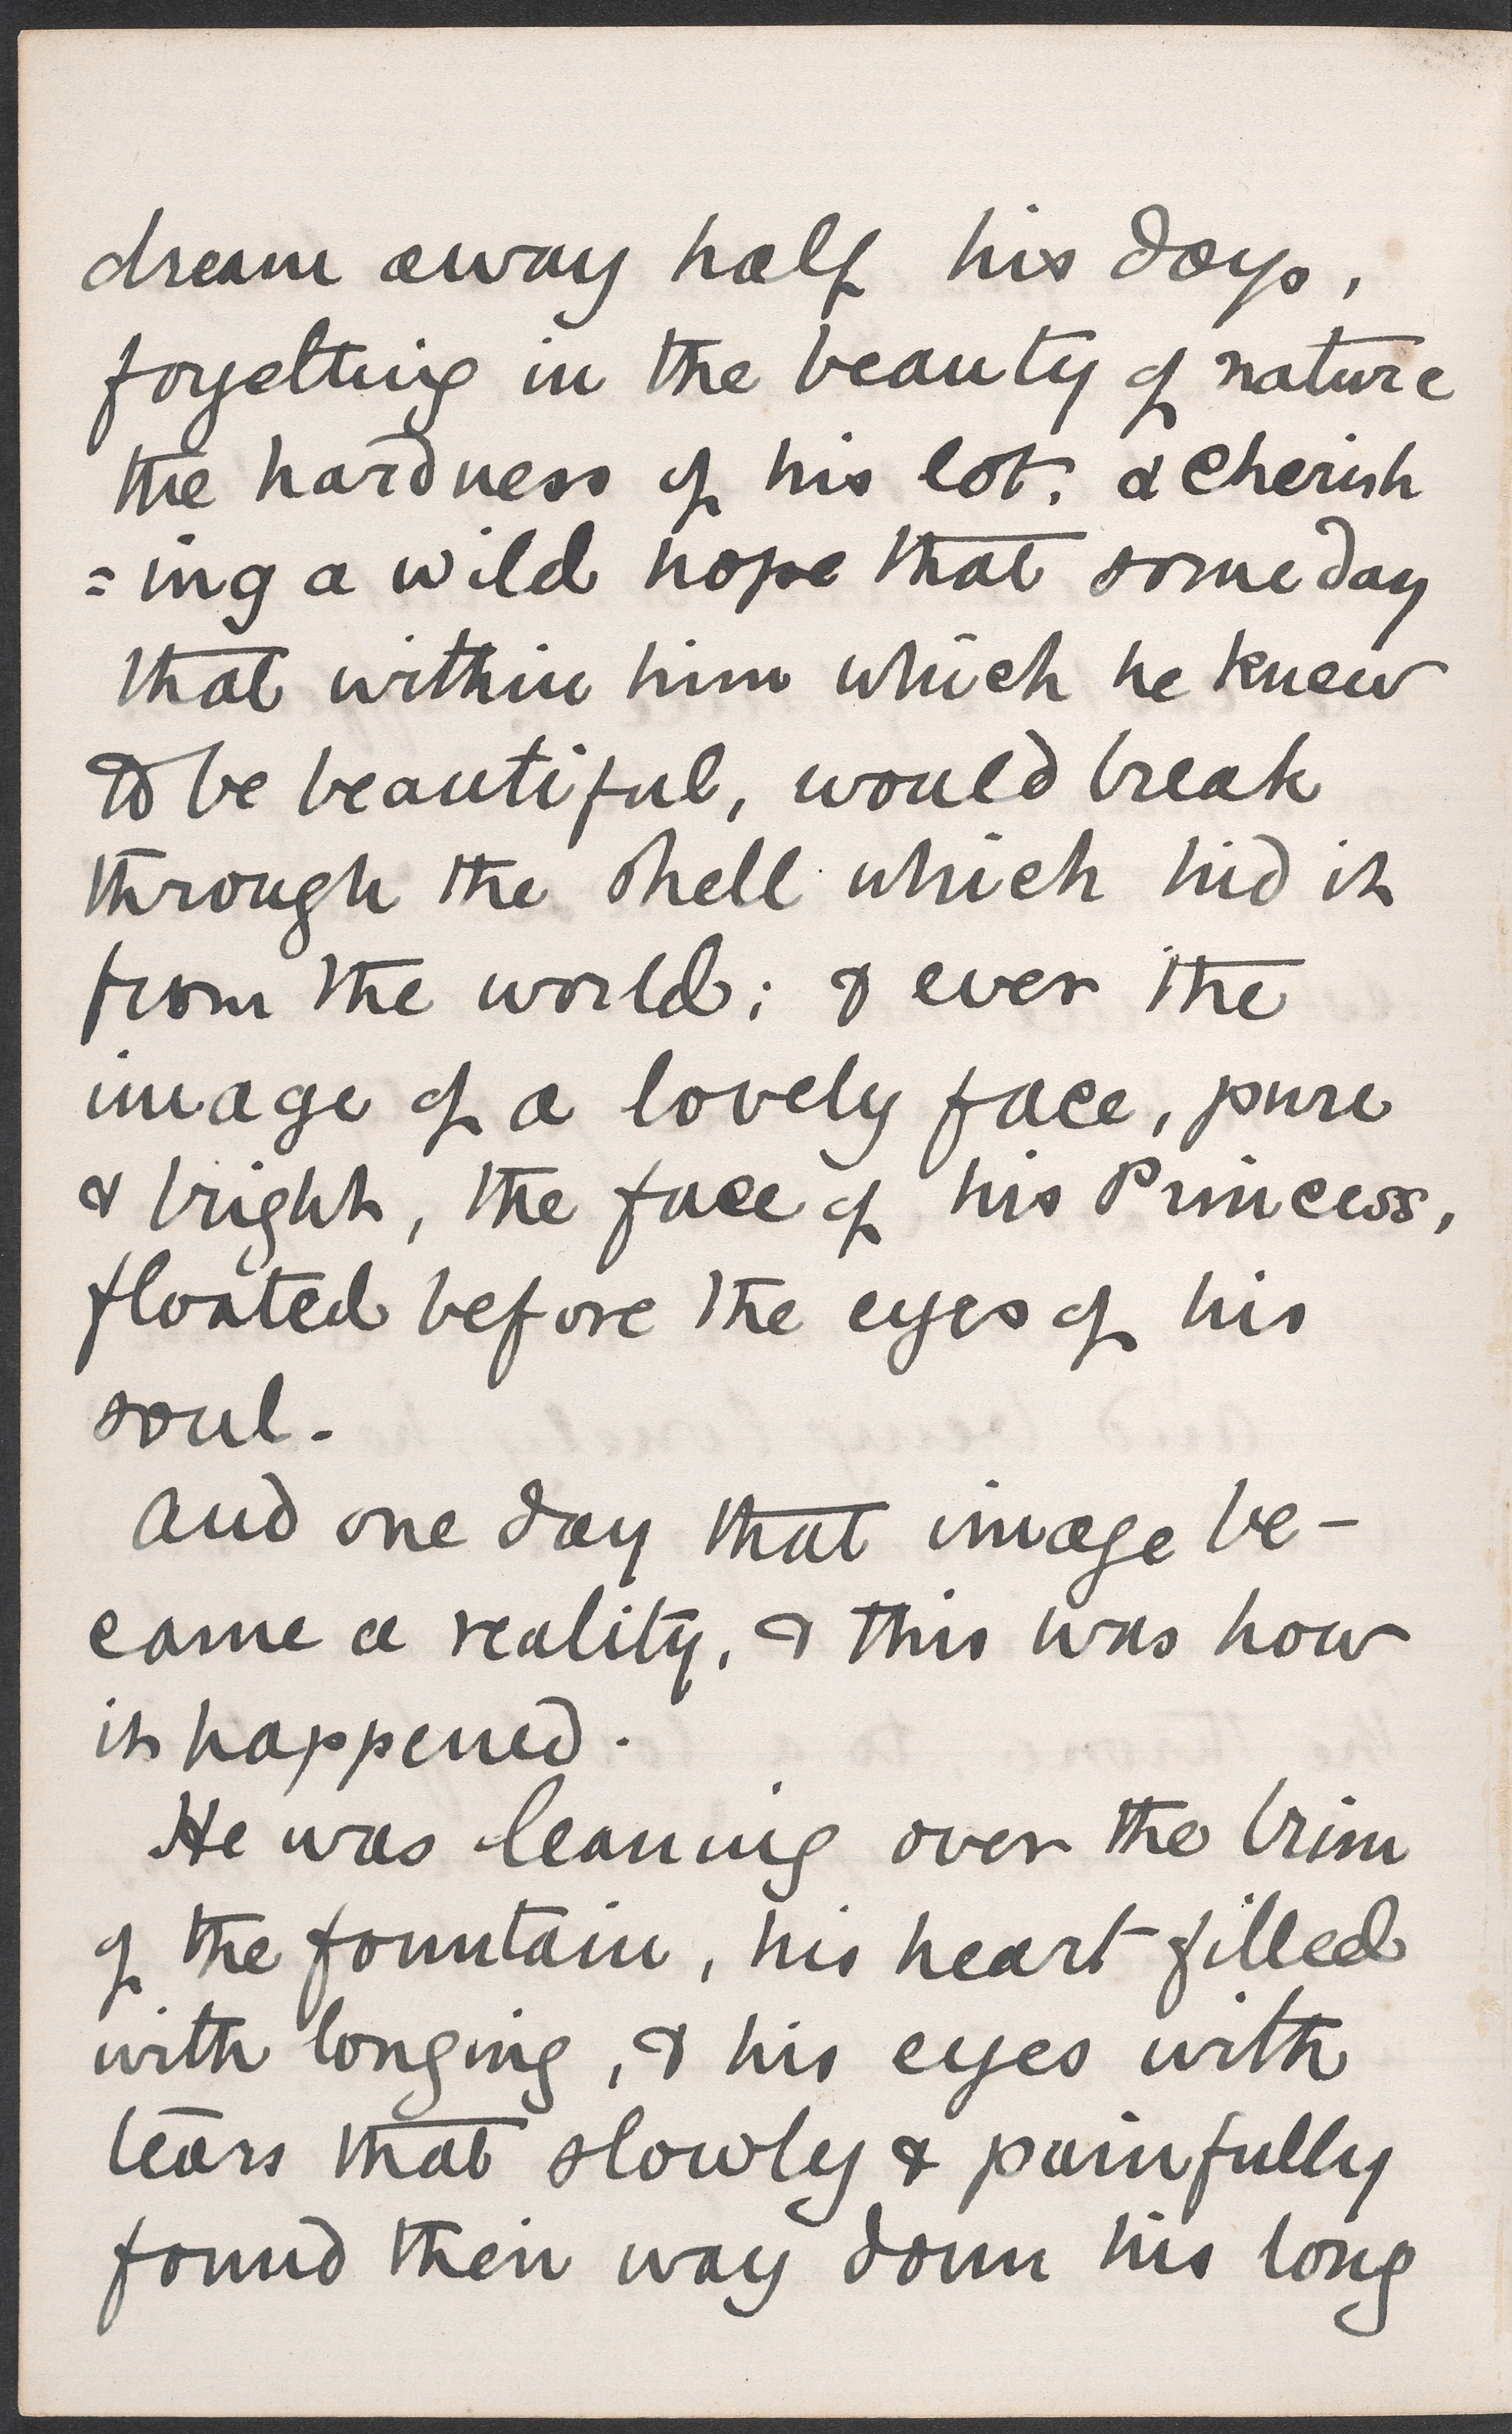 dream away half his days,
forgetting in the beauty of nature
the hardness of his lot, & cherish
=ing a wild hope that some day
that within him which he knew
to be beautiful, would break
through the shell which hid it
from the world; & ever the
image of a lovely face, pure
& bright, the face of his Princess,
floated before the eyes of his
soul.
And one day that image be-
came a reality, & this was how
it happened.
He was leaning over the brim
of the fountain, his heart filled
with longing, & his eyes with
tears that slowly & painfully
found their way down his long